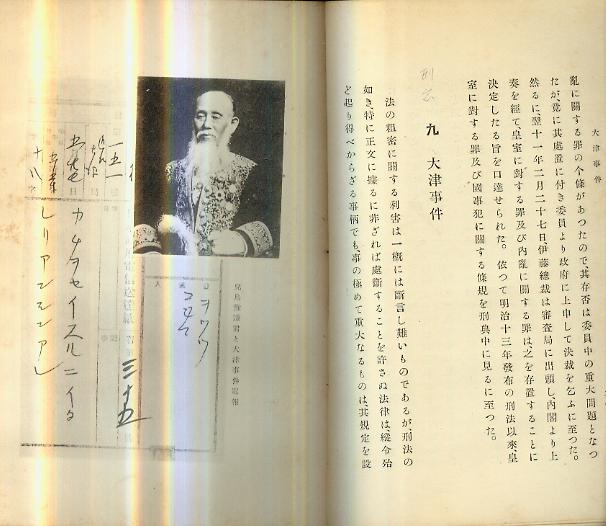 大津事件
亂に關する罪の今條があつたので、其存否は委員中の重大問題となつ
たが、竟に其處置に付き委員より政府に上申して決裁を乞ふに至つた。
然るに翌十一年二月二十七日伊藤總裁は審査局に出頭し、內閣より上
奏を經て、皇室に對する罪及び內亂に關する罪は、之を存置することに
決定したる旨を口達せられた。依つて明治十三年發布の刑法以來、皇
室に對する罪及び國事犯に關する條規を刑典中に見るに至つた。
九 大津事件
法の粗密に關する利害は一槪には斷言し難いものであるが、刑法の
如き、特に正文に據るに非ざれば處斷することを許さぬ法律は、縱令殆
ど起り得べからざる事柄でも、事の極めて重大なるものは、其規定を設
兒島惟謙君と大津事件電報
三十五
カナラセイスルニイタ